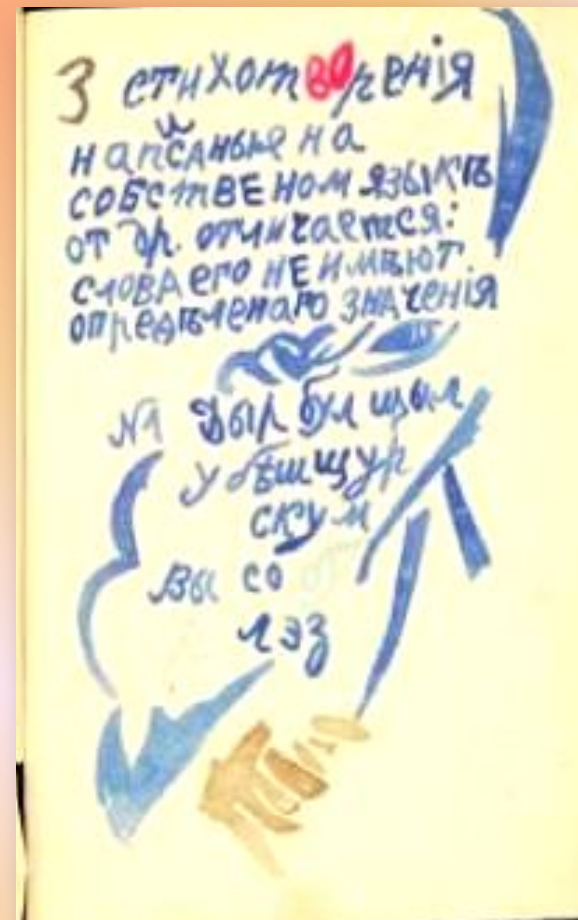 3 стихотворенія
напсаные на
и
собственом языкѣ
от др. отличается:
слова его не имѣют
опредѣленаго значенія
№1 Дыр бул щыл
убѣшщур
скум
вы со
лэз